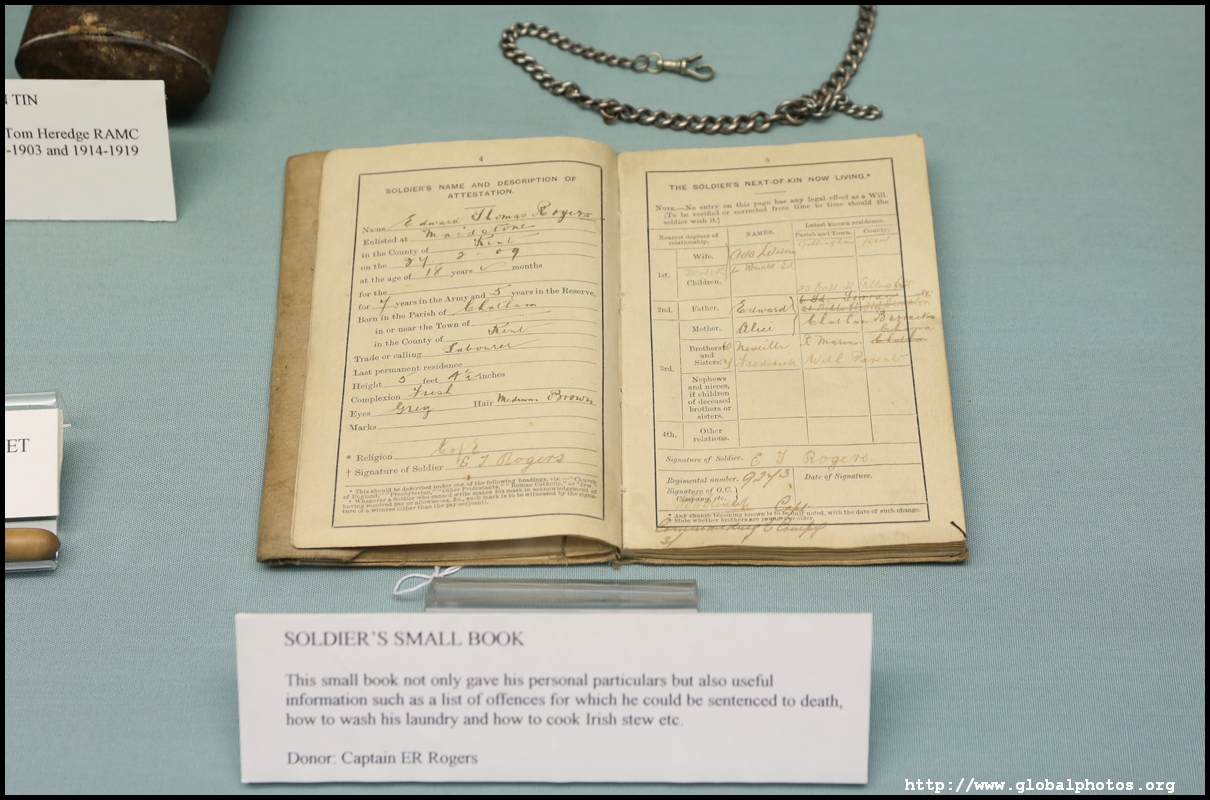 TIN
Tom Heredge RAMC
-1903 and 1914-1919
ET
4
SOLDIER'S NAME AND DESCRIPTION OF
ATTESTATION.
Name Edward Thomas Rogers
Enlisted at Maidstone
in the County of Kent
on the 27. 2. 09
at the age of 18 years months
for the
for 7 years in the Army and 5 years in the Reserve.
Born in the Parish of Chatham
in or near the Town of
in the County of Kent
Trade or calling Labourer
Last permanent residence
Height 5 feet 4½ inches
Complexion Fresh
Eyes Grey Hair Medium Brown
Marks
* Religion C of E
† Signature of Soldier E T Rogers
* This should be described under one of the following headings, viz.:—"Church
of England," "Presbyterian," "Other Protestants," "Roman Catholic," or "Jew."
† Whenever a Soldier who cannot write makes his mark in acknowledgement of
having received pay or allowances, &c., such mark is to be witnessed by the signa-
ture of a witness (other than the pay-serjeant).
5
THE SOLDIER'S NEXT-OF-KIN NOW LIVING.*
NOTE.—No entry on this page has any legal effect as a Will.
(To be verified or corrected from time to time should the
soldier wish it.)
Nearest degrees of
relationship.
NAMES.
Latest known residence.
Parish and Town. County.
1st. Wife. Ada Gillingham Kent
Children. Ronald
2nd. Father. Edward
Mother. Alice Chatham
3rd. Brothers
and
Sisters.
Neville
Frederick With Parents
Nephews
and nieces,
if children
of deceased
brothers or
sisters.
4th. Other
relations.
Signature of Soldier. E T Rogers
Regimental number. 9273 Date of Signature.
Signature of O.C.
Company, etc. Capt
* Any change becoming known is to be duly noted, with the date of such change.
State whether brothers are younger or older.
Commanding Compy
SOLDIER'S SMALL BOOK
This small book not only gave his personal particulars but also useful
information such as a list of offences for which he could be sentenced to death,
how to wash his laundry and how to cook Irish stew etc.
Donor: Captain ER Rogers
http://www.globalphotos.org